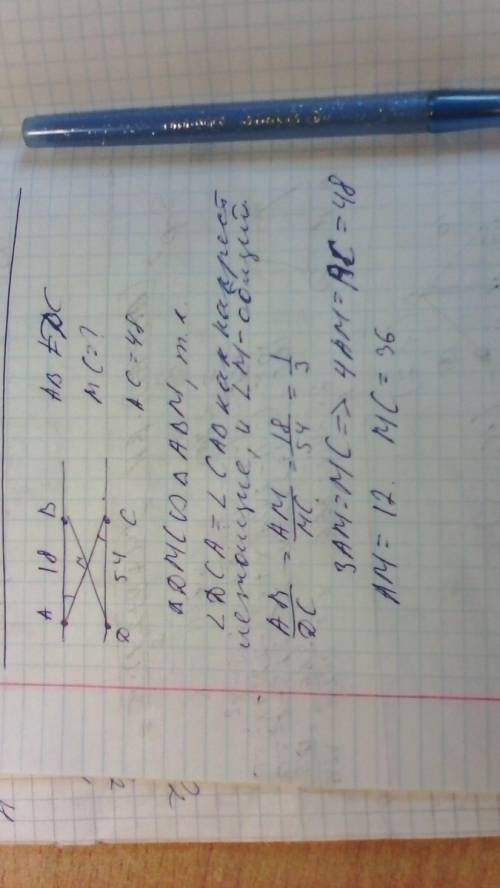 A 18 B
M
D 54 C
AB ∥ DC
MC = ?
AC = 48
△DMC ∞ △ABM, т.к.
∠DCA = ∠CAB как накрест
лежащие, и ∠M - общий.
AB/DC = AM/MC = 18/54 = 1/3
3AM = MC => 4AM = AC = 48
AM = 12. MC = 36